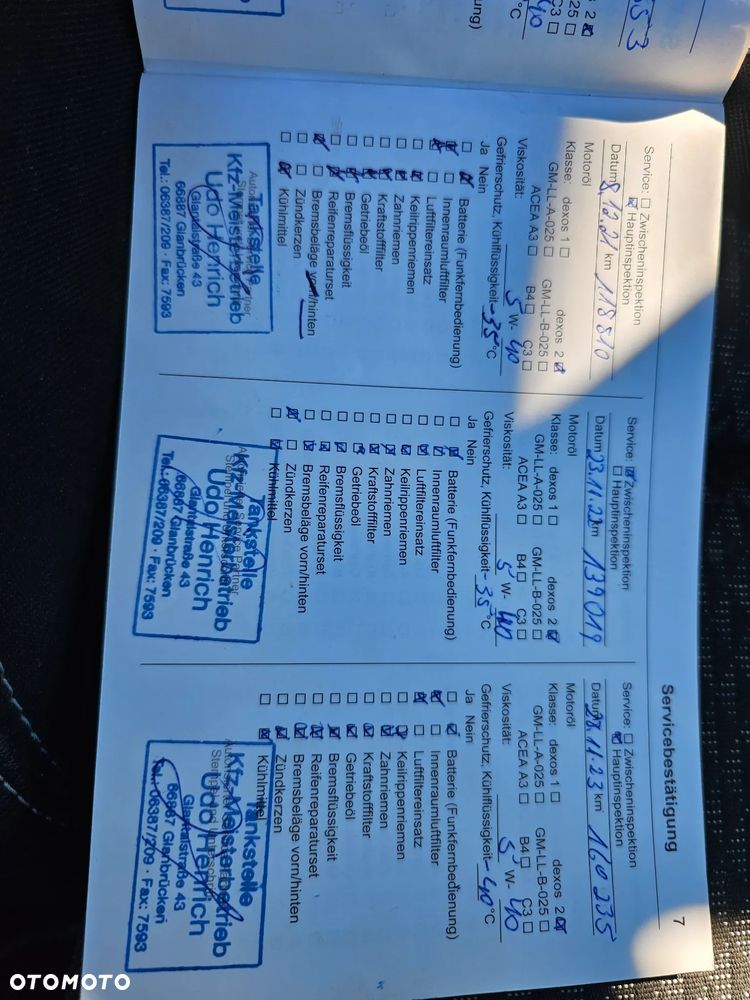 Servicebestätigung
7
Service: ☐ Zwischeninspektion
☒ Hauptinspektion
Datum 8.12.21 km 118810
Motoröl
Klasse: dexos 1 ☐ dexos 2 ☒
GM-LL-A-025 ☐ GM-LL-B-025 ☐
ACEA A3 ☐ B4 ☐ C3 ☐
Viskosität: 5 W- 40
Gefrierschutz, Kühlflüssigkeit -35 °C
Ja Nein
☐ ☒ Batterie (Funkfernbedienung)
☒ ☐ Innenraumluftfilter
☒ ☐ Luftfiltereinsatz
☐ ☒ Keilrippenriemen
☐ ☒ Zahnriemen
☐ ☒ Kraftstofffilter
☐ ☒ Getriebeöl
☐ ☒ Bremsflüssigkeit
☐ ☒ Reifenreparaturset
☒ ☐ Bremsbeläge vorn/hinten
☐ ☐ Zündkerzen
☐ ☒ Kühlmittel
Tankstelle
Kfz-Meisterbetrieb
Udo Henrich
Glantalstraße 43
66887 Glanbrücken
Tel.: 06387/209 · Fax: 7593
Service: ☒ Zwischeninspektion
☐ Hauptinspektion
Datum 23.11.22 km 139019
Motoröl
Klasse: dexos 1 ☐ dexos 2 ☒
GM-LL-A-025 ☐ GM-LL-B-025 ☐
ACEA A3 ☐ B4 ☐ C3 ☐
Viskosität: 5 W- 40
Gefrierschutz, Kühlflüssigkeit -35 °C
Ja Nein
☐ ☒ Batterie (Funkfernbedienung)
☐ ☒ Innenraumluftfilter
☐ ☒ Luftfiltereinsatz
☐ ☒ Keilrippenriemen
☐ ☒ Zahnriemen
☐ ☒ Kraftstofffilter
☐ ☒ Getriebeöl
☐ ☒ Bremsflüssigkeit
☐ ☒ Reifenreparaturset
☐ ☒ Bremsbeläge vorn/hinten
☒ ☐ Zündkerzen
☐ ☒ Kühlmittel
Tankstelle
Kfz-Meisterbetrieb
Udo Henrich
Glantalstraße 43
66887 Glanbrücken
Tel.: 06387/209 · Fax: 7593
Service: ☐ Zwischeninspektion
☒ Hauptinspektion
Datum 28.11.23 km 160235
Motoröl
Klasse: dexos 1 ☐ dexos 2 ☒
GM-LL-A-025 ☐ GM-LL-B-025 ☐
ACEA A3 ☐ B4 ☐ C3 ☐
Viskosität: 5 W- 40
Gefrierschutz, Kühlflüssigkeit -40 °C
Ja Nein
☐ ☒ Batterie (Funkfernbedienung)
☒ ☐ Innenraumluftfilter
☒ ☐ Luftfiltereinsatz
☐ ☒ Keilrippenriemen
☐ ☒ Zahnriemen
☐ ☒ Kraftstofffilter
☐ ☒ Getriebeöl
☐ ☒ Bremsflüssigkeit
☐ ☒ Reifenreparaturset
☐ ☒ Bremsbeläge vorn/hinten
☐ ☒ Zündkerzen
☐ ☒ Kühlmittel
Tankstelle
Kfz-Meisterbetrieb
Udo Henrich
Glantalstraße 43
66887 Glanbrücken
Tel.: 06387/209 · Fax: 7593
OTOMOTO